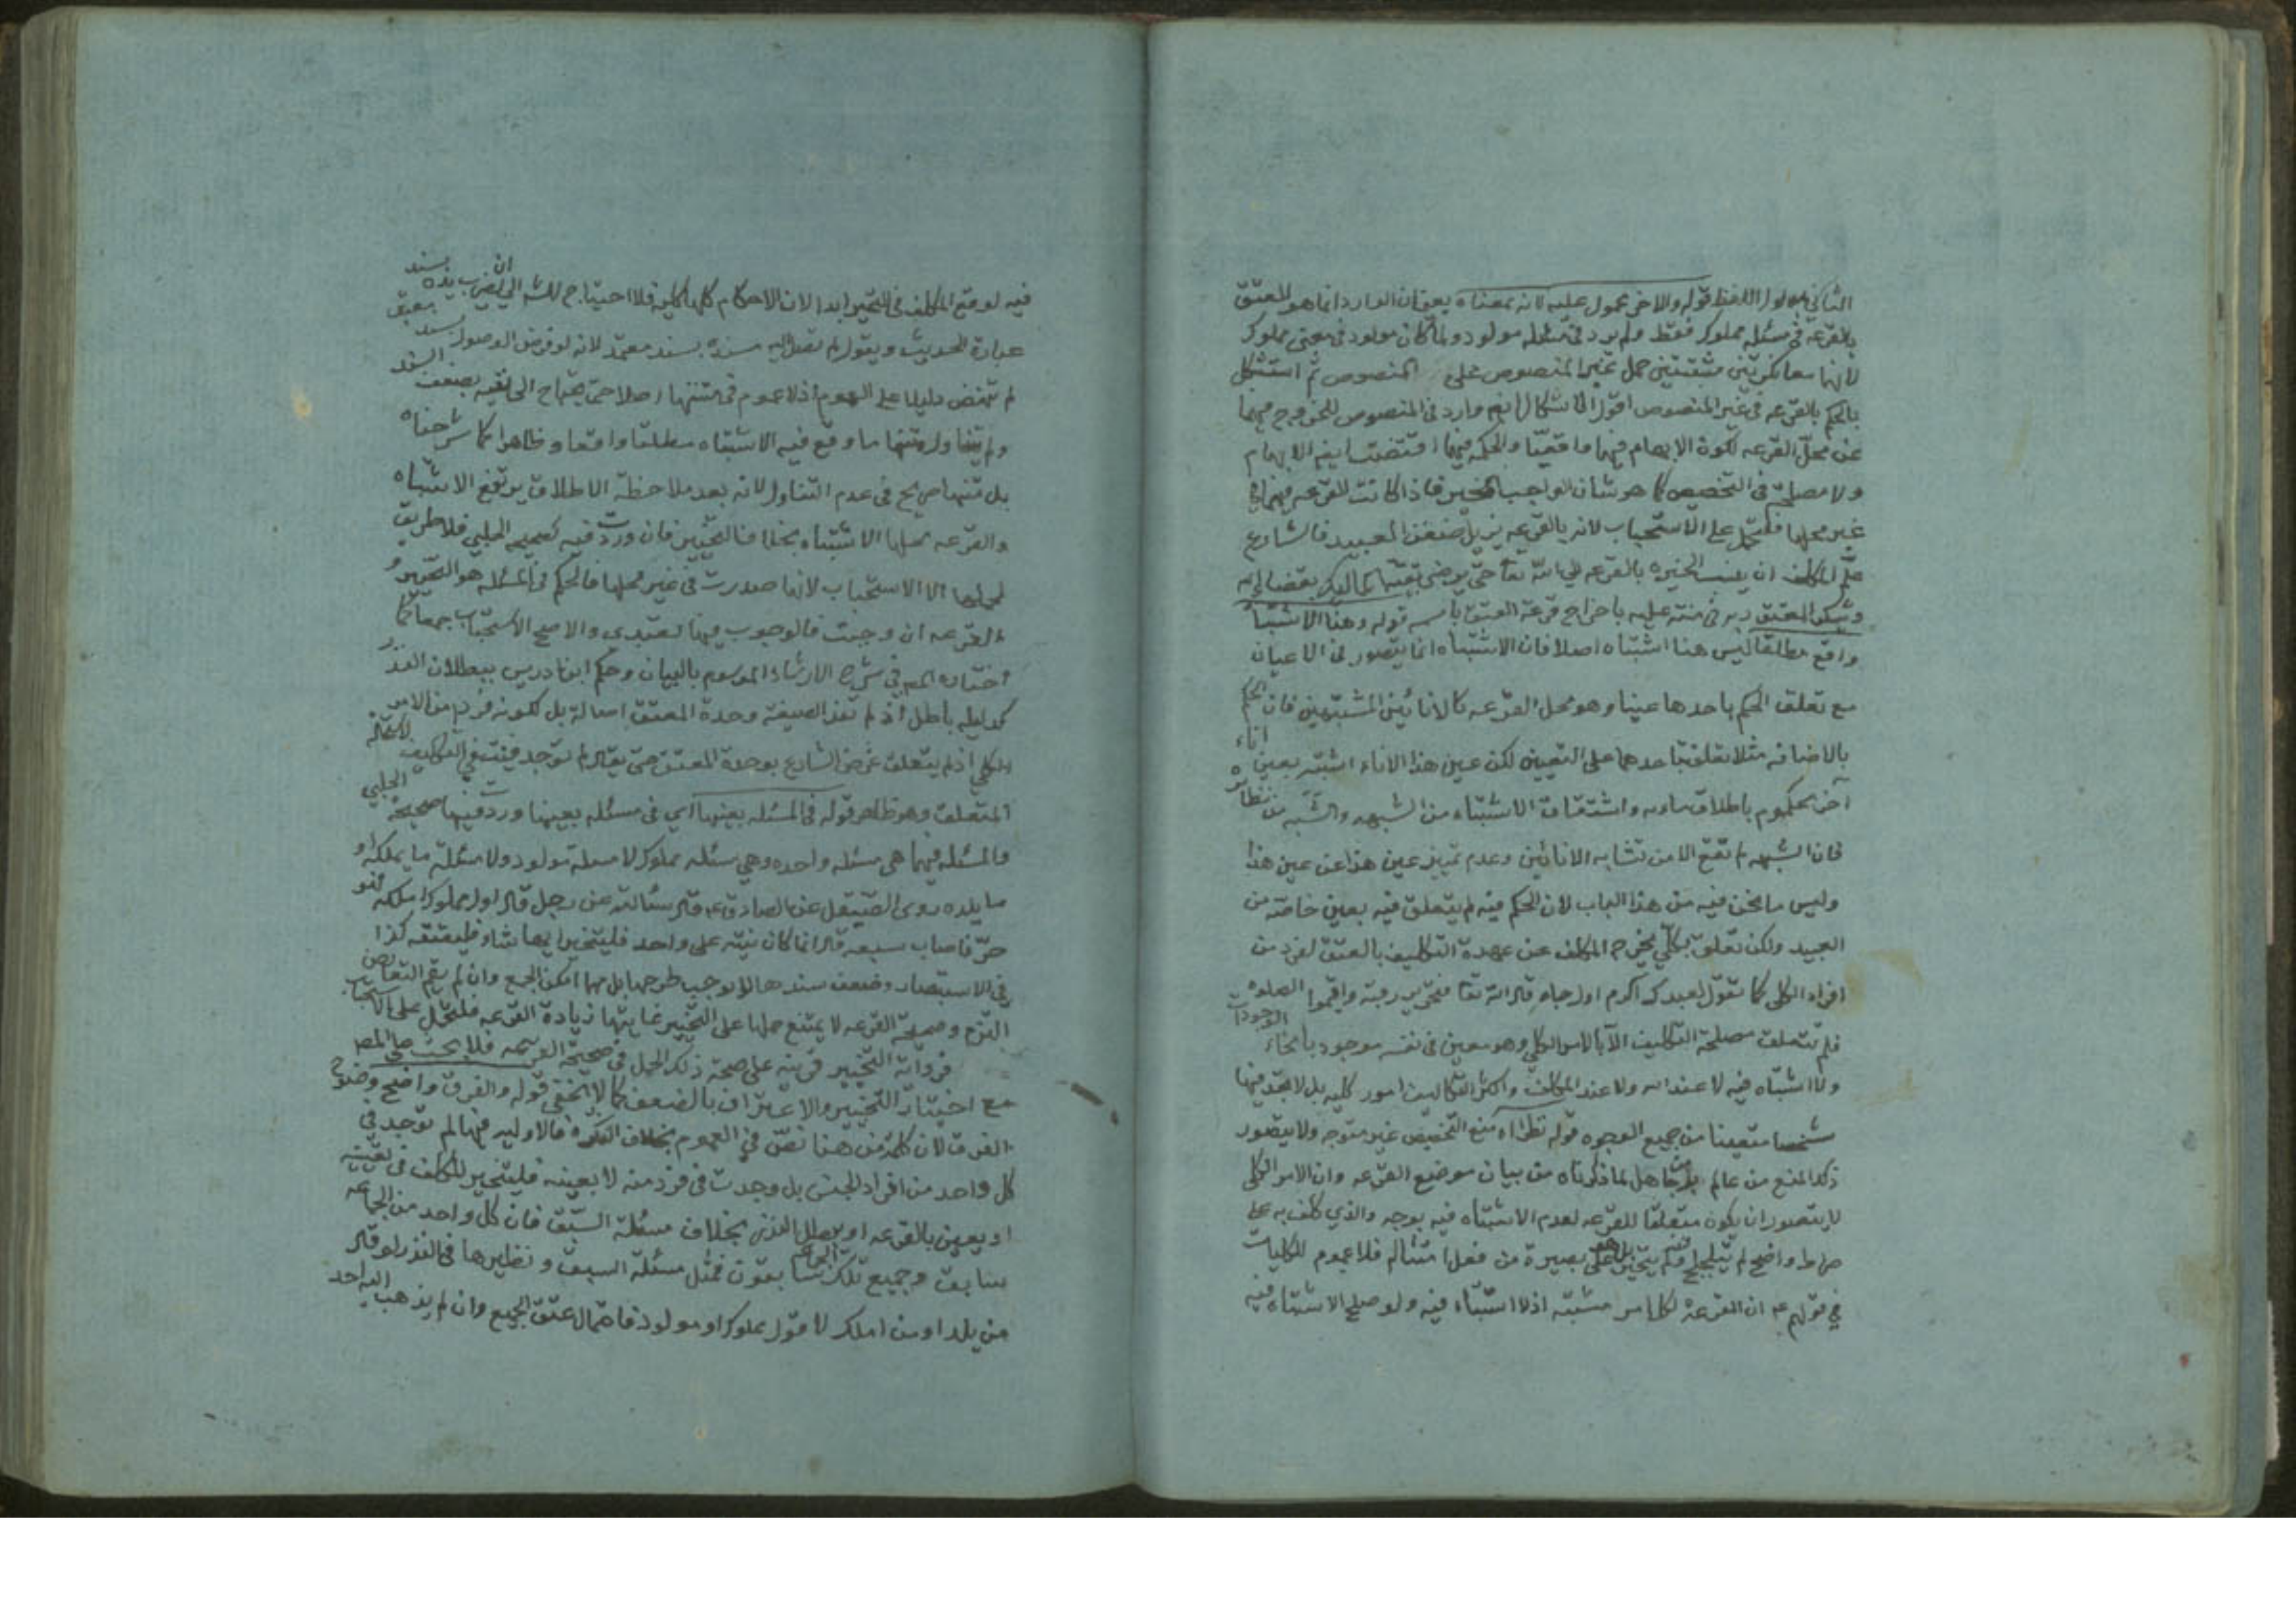 الثاني مدلول اللفظ قوله والاخر محمول عليه لانه بمعناه يعني ان الوارد انما هو للعتق
بالقرعه في مسئله مملوك فقط ولم يرد في مسئله مولود ولما كان مولود في معنى مملوك
لانهما معا نكرتين مثبتتين حمل غير المنصوص على المنصوص ثم استشكل
بالحكم بالقرعه في غير المنصوص اقول الاشكال ايضا وارد في المنصوص للخروج فيهما
عن محل القرعه لكون الابهام فيهما واقعيا والحكمه فيهما اقتضت ايضا الابهام
ولا مصلحة في التخصيص كما هو شان الواجب المخير فاذا كانت القرعه فيهما في
غير محلها فلتحمل على الاستحباب لانه بالقرعه يزيل ضغن العبيد فالشارع
علم المكلف ان ينسب الخيره بالقرعه الى الله تعا حتى يرضى بقيتها المماليك بقضاء الله
ويشكر المعتق ربه في منته عليه باخراج قرعة العتق باسمه قوله وهنا الاشتباه
واقع مطلقا ليس هنا اشتباه اصلا فان الاشتباه انما يتصور في الاعيان
مع تعلق الحكم باحدها عينا وهو محل القرعه كالانائين المشتبهين فان الحكم
بالاضافه مثلا تعلق باحدهما على التعيين لكن عين هذا الاناء اشتبه بعين اناء
آخر محكوم باطلاق ماءه واشتقاق الاشتباه من الشبهه والشبه من نظائره
فان الشبهه لم تقع الا من تشابه الانائين وعدم تميز عين هذا عن عين هذا
وليس ما نحن فيه من هذا الباب لان الحكم فيه لم يتعلق فيه بعين خاصة من
العبيد ولكن تعلق بكلي يخرج المكلف عن عهدة التكليف بالعتق لفرد من
افراد الكلي كما تقول لعبدك اكرم اول جاء قال الله تعا فتحرير رقبة واقيموا الصلوه
فلم تتعلق مصلحة التكليف الا بالامر الكلي وهو معين في نفسه موجود بانحاء الوجودات
ولا اشتباه فيه لا عند الله ولا عند المكلف واكثر التكاليف امور كليه بل لا تجد فيها
شخصا متعينا من جميع الوجوه قوله نظرا الى منع التخصيص غير متوجه ولا يتصور
ذلك المنع من عالم بل جاهل لما ذكرناه من بيان موضع القرعه وان الامر الكلي
لا يتصور ان يكون متعلقا للقرعه لعدم الاشتباه فيه بوجه والذي كلف به على
صراط واضح لم يتلجلج فيه ولم يتحير بل هو على بصيرة من فعل امتثاله فلا عموم للكليات
في قولهم ع ان القرعة لكل امر مشتبه اذ لا اشتباه فيه ولو صلح الاشتباه فيه
فيه لوقع المكلف في التحير ابدا لان الاحكام كلها كليه فلا احتياج للشه الى ان يضرب بسند
عبارة الحديث ويقول لم تصل اليه مسنده بسند معتمد لانه لو فرض الوصول بسند
لم تنهض دليلا على العموم اذ لا عموم في متنها اصلا حتى يحتاج الى نفيه بضعف السند
ولم يتناول متنها ما وقع فيه الاشتباه مطلقا واقعا وظاهرا كما شرحناه
بل متنها صريح في عدم التناول لانه بعد ملاحظة الاطلاق يرتفع الاشتباه
والقرعه محلها الاشتباه بخلاف التخيير فان وردت فيه كصحيحه الحلبي فلا طريق
لحملها الا الاستحباب لانها صدرت في غير محلها فالحكم في المسئله هو التخيير و
القرعه ان وجبت فالوجوب فيها تعبدي والاصح الاستحباب جمعا كما
اختاره المص في شرح الارشاد الموسوم بالبيان وحكم ابن ادريس ببطلان النذر
كدليله باطل اذ لم تفد الصيغة وحدة المعتق اصالة بل لكونه فرد من الامر
الكلي اذ لم يتعلق غرض الشارع بوحدة المعتق حتى يقال لم توجد فينتفي التكليف لانتفاء
المتعلق وهو ظاهر قوله في المسئله بعينها اي في مسئله بعينها وردت فيها صحيحة الحلبي
فالمسئله فيهما هي مسئله واحده وهي مسئله مملوك لا مسئلة مولود ولا مسئلة ما يملكه او
ما يلده روى الصيقل عن الصادق ع قال سئالته عن رجل قال اول مملوك املكه فهو
حر فاصاب سبعه قال انما كان نيته على واحد فليتخير ايها شاء فليعتقه كذا
في الاستبصار وضعف سندها لا يوجب طرحها بل مهما امكن الجمع وان لم يقم التعارض
التزم وصحيحة القرعه لا يمتنع حملها على التخيير غايتها زيادة القرعه فلتحمل على الاستحباب
فرواية التخيير قرينه على صحة ذلك الحمل في صحيحة القرعه فلا بحث على المص
مع اختيار التخيير والاعتراف بالضعف كما لا يخفى قوله والفرق واضح وضوح
الفرق لان كلمة من هنا نص في العموم بخلاف النكره فالاوليه فيها لم توجد في
كل واحد من افراد الجنس بل وجدت في فرد منه لا بعينه فليتخير المكلف في تعيينه
او يعين بالقرعه او يبطل النذر بخلاف مسئلة السبق فان كل واحد من الجماعه
سابق وجميع تلك الجماعه سابقون فمثل مسئلة السبق ونظيرها في النذر لو قال
من يلد او من املك لا قول مملوك او مولود فاحتمال عتق الجميع وان لم يذهب اليه احد